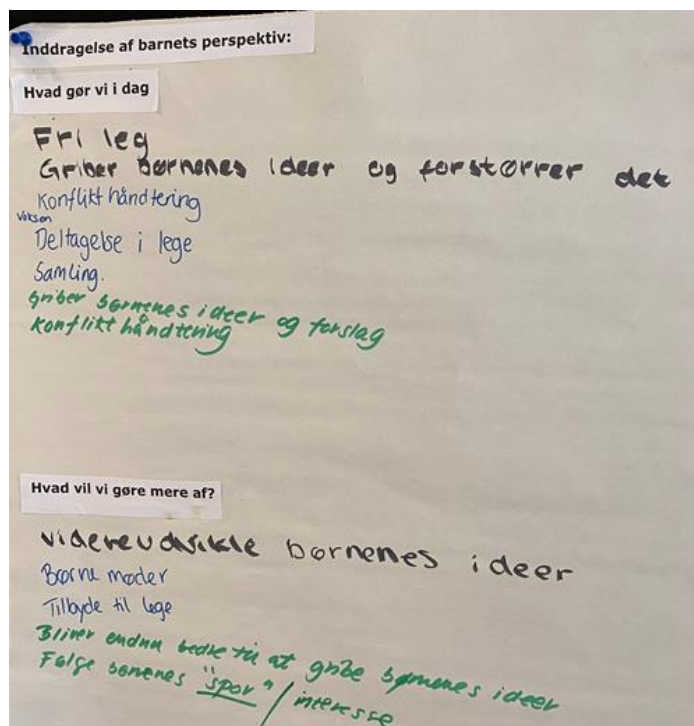 Inddragelse af barnets perspektiv:
Hvad gør vi i dag
Fri leg
Griber børnenes ideer og forstørrer det
Konflikt håndtering
Voksen
Deltagelse i lege
Samling.
Griber børnenes ideer og forslag
Konflikt håndtering
Hvad vil vi gøre mere af?
Videreudvikle børnenes ideer
Børne møder
Tilbyde til lege
Bliver endnu bedre til at gribe børnenes ideer
Følge børnenes "spor" / interesse